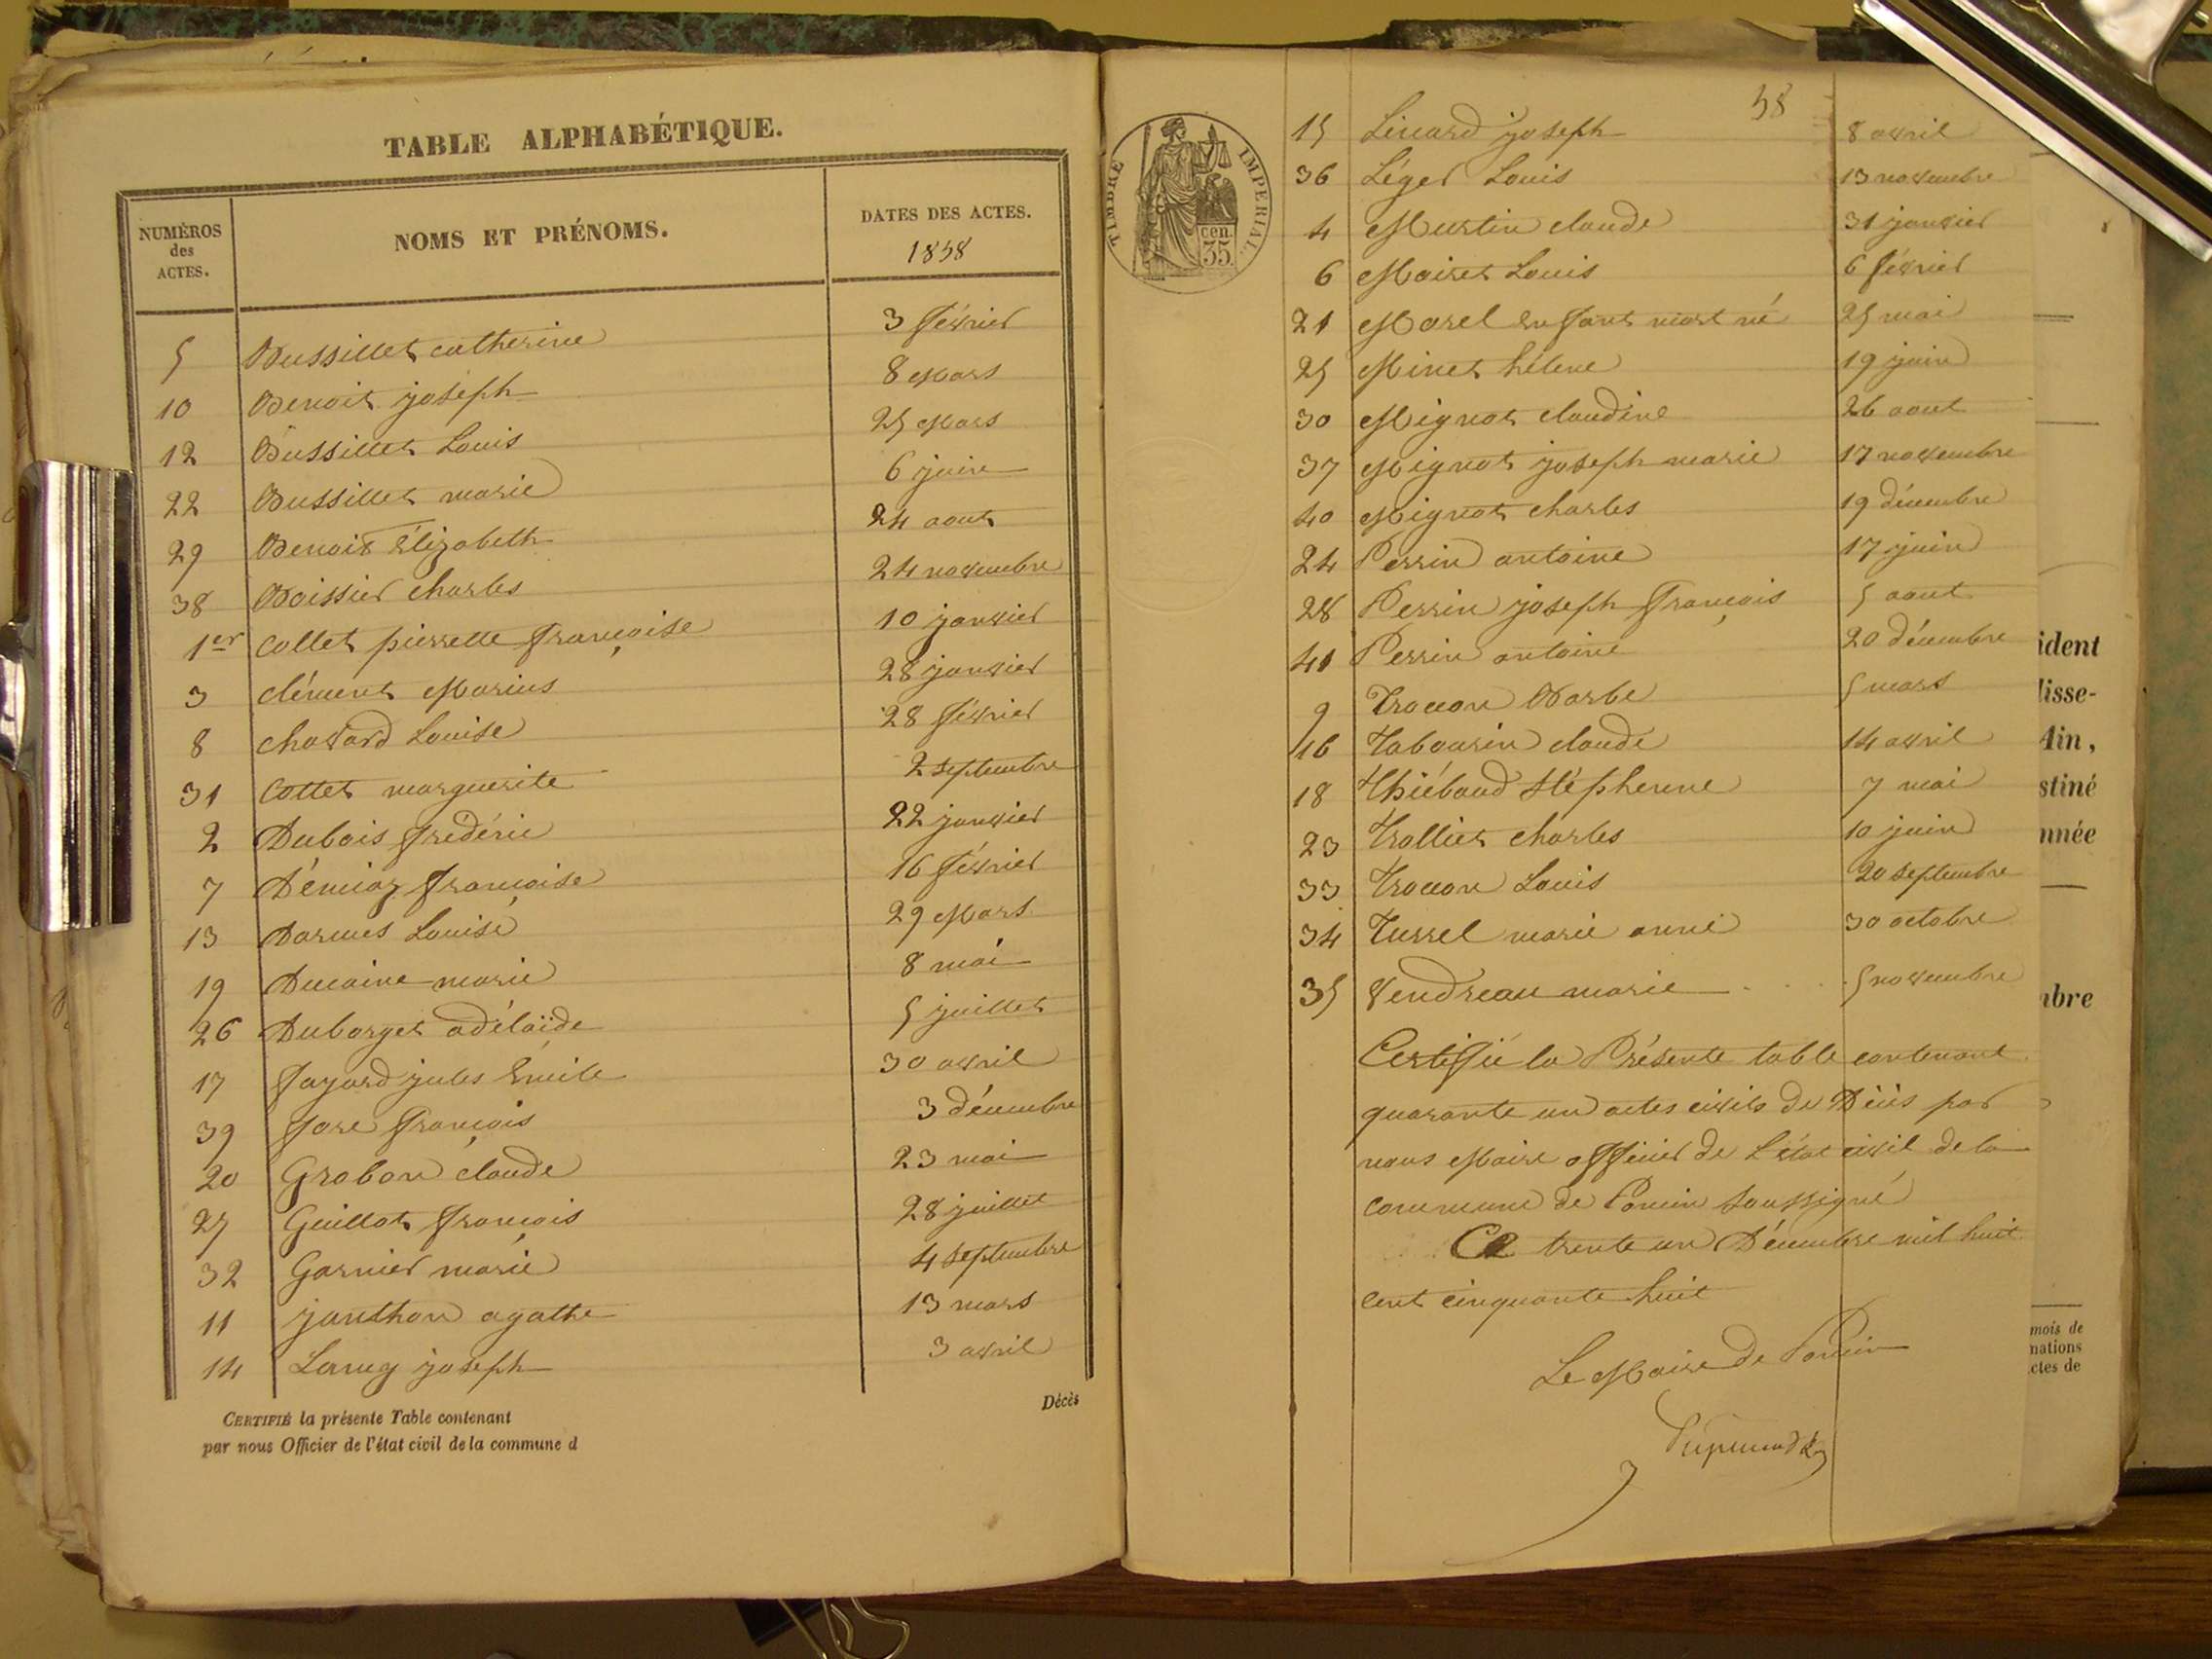 TABLE ALPHABÉTIQUE.
NUMÉROS des ACTES. NOMS ET PRÉNOMS. DATES DES ACTES.
1858
5 Bussillet catherine 3 février
10 Benoit joseph 8 Mars
12 Bussillet Louis 25 Mars
22 Bussillet marie 6 juin
29 Benoit Élizabeth 24 aout
38 Boissier charles 24 novembre
1er Collet pierrette françoise 10 janvier
3 clément Marius 28 janvier
8 chavard Louise 28 février
31 Cottet marguerite 2 septembre
2 Dubois frédéric 22 janvier
7 Démiaz françoise 16 février
13 Darmes Louise 29 Mars
19 Ducaine marie 8 mai
26 Duborget adélaïde 5 juillet
17 fayard jules Émile 30 avril
39 fore françois 3 décembre
20 Grobon claude 23 mai
27 Guillot françois 28 juillet
32 Garnier marie 4 septembre
11 janthon agathe 13 mars
14 joseph 3 avril
CERTIFIÉ la présente Table contenant
par nous Officier de l'état civil de la commune d
Décès
58
TIMBRE IMPÉRIAL.
cen. 35.
15 Linard joseph 8 avril
36 Léger Louis 13 novembre
4 Martin claude 31 janvier
6 Moiret Louis 6 février
21 Morel enfant mort né 25 mai
25 Minet hélene 19 juin
30 Mignot claudine 26 aout
37 Mignot joseph marie 17 novembre
40 Mignot charles 19 décembre
24 Perrin antoine 17 juin
28 Perrin joseph françois 5 aout
41 Perrin antoine 20 décembre
9 Trocon Barbe 5 mars
16 Tabourin claude 14 avril
18 Thiébaud Stéphenne 7 mai
23 Trolliet charles 10 juin
33 Trocon Louis 20 septembre
34 Turrel marie anne 30 octobre
35 Vendreau marie 5 novembre
Certifié la Présente table contenant
quarante un actes civils de Décès par
nous Maire officier de L'état civil de la
commune de Poncin Soussigné
Ce trente un Décembre mil huit
cent cinquante huit
Le Maire de Poncin
ident
lisse-
Ain,
stiné
nnée
mbre
mois de
nations
ctes de